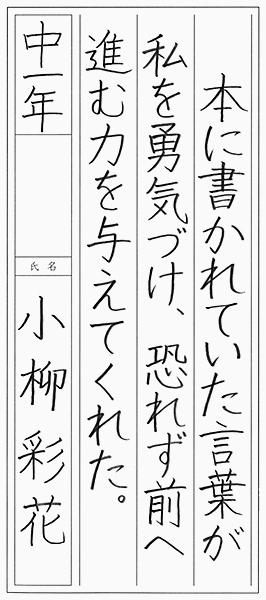 本に書かれていた言葉が
私を勇気づけ、恐れず前へ
進む力を与えてくれた。
中一年
氏名
小柳彩花